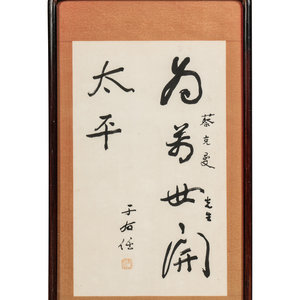 為萬世開
蔡克曼先生
太平
于右任